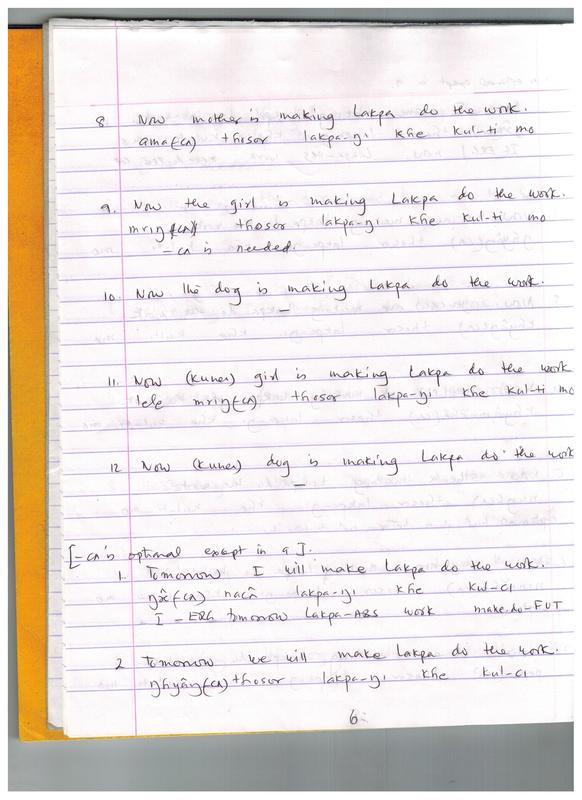 8. Now mother is making Lakpa do the work.
ama(-cʌ) thosor lakpa-ŋi khe kul-ti mo
9. Now the girl is making Lakpa do the work.
mriŋ(-cʌ) thosor lakpa-ŋi khe kul-ti mo
-cʌ is needed.
10. Now the dog is making Lakpa do the work.
—
11. Now (Kuner) girl is making Lakpa do the work
tele mriŋ(-cʌ) thosor lakpa-ŋi khe kul-ti mo
12 Now (Kuner) dog is making Lakpa do the work
—
[-cʌ is optional except in 9].
1. Tomorrow I will make Lakpa do the work.
(-cʌ) lakpa-ŋi khe kul-ci
I -ERG tomorrow Lakpa-ABS work make.do-FUT
2 Tomorrow we will make Lakpa do the work.
ŋhyâŋ(-cʌ) thosor lakpa-ŋi khe kul-ci
6